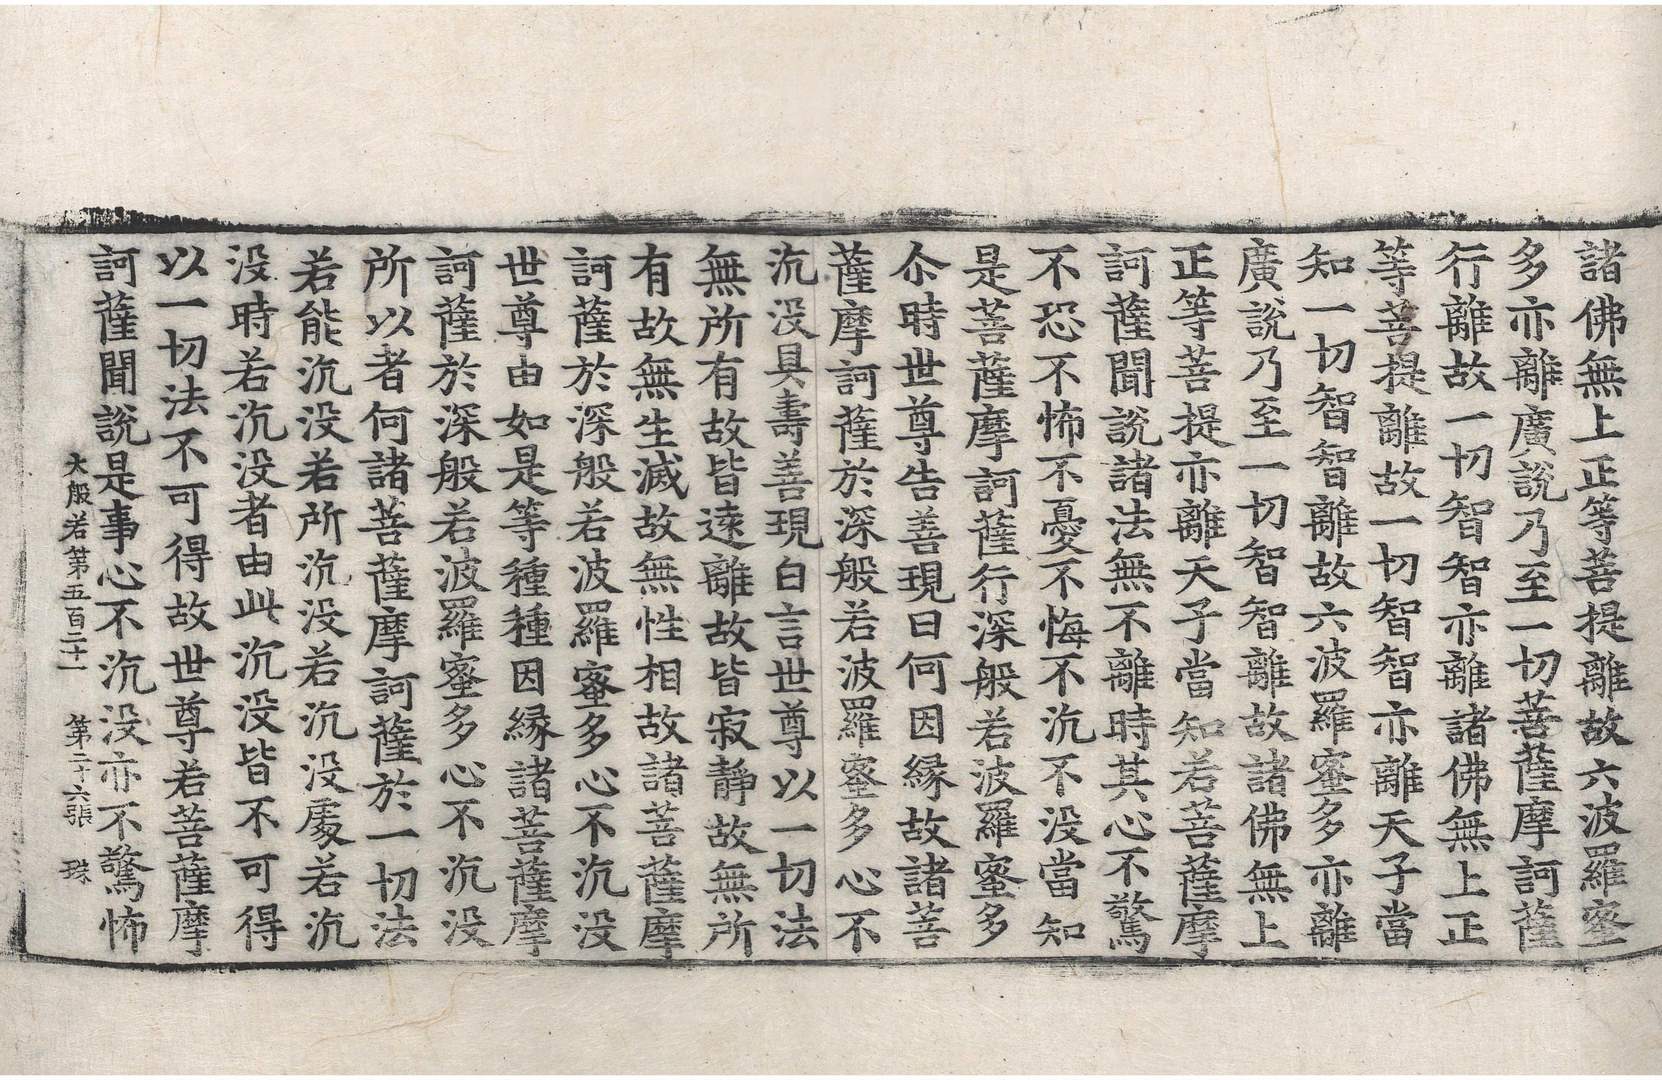 諸佛無上正等菩提離故六波羅蜜
多亦離廣說乃至一切菩薩摩訶薩
行離故一切智智亦離諸佛無上正
等菩提離故一切智智亦離天子當
知一切智智離故六波羅蜜多亦離
廣說乃至一切智智離故諸佛無上
正等菩提亦離天子當知若菩薩摩
訶薩聞說諸法無不離時其心不驚
不恐不怖不憂不悔不沉不没當知
是菩薩摩訶薩行深般若波羅蜜多
尒時世尊告善現曰何因縁故諸菩
薩摩訶薩於深般若波羅蜜多心不
沉没具壽善現白言世尊以一切法
無所有故皆遠離故皆寂静故無所
有故無生滅故無性相故諸菩薩摩
訶薩於深般若波羅蜜多心不沉没
世尊由如是等種種因縁諸菩薩摩
訶薩於深般若波羅蜜多心不沉没
所以者何諸菩薩摩訶薩於一切法
若能沉没若所沉没若沉没處若沉
没時若沉没者由此沉没皆不可得
以一切法不可得故世尊若菩薩摩
訶薩聞說是事心不沉没亦不驚怖
大般若第五百二十一 第二十六張 珠